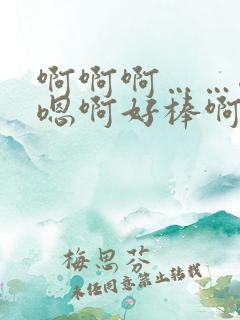 啊啊啊……
嗯啊好棒啊
梅思芬
未经同意禁止转载